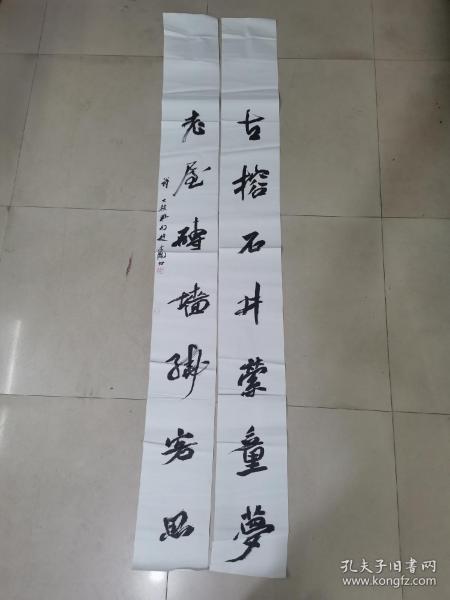 古榕石井縈童夢
老屋磚墻掛客思
孔夫子旧书网
www.kongfz.com